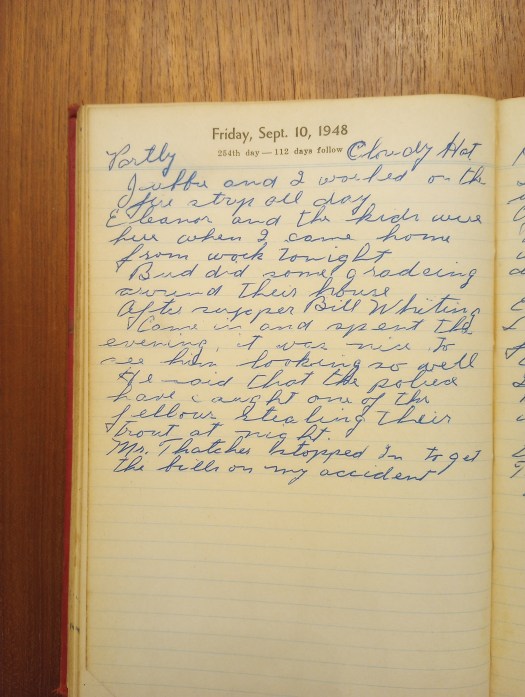 Friday, Sept. 10, 1948
254th day — 112 days follow
Partly Cloudy Hot
Jubbe and I worked on the
fire strip all day
Eleanor and the kids were
here when I came home
from work tonight
Bud did some gradeing
around their house
After supper Bill Whiting
Came in and spent the
evening, it was nice to
see him looking so well
He said that the police
have caught one of the
fellows stealing their
trout at night.
Mr. Thatcher stopped in to get
the bills on my accident